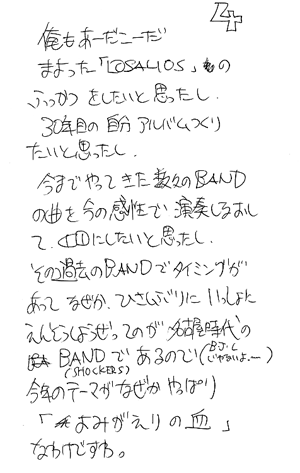 4
俺もあーだこーだ
まよった「LOSALIOS」の
ふっかつをしたいと思ったし.
30年目の自分アルバムつくり
たいと思ったし.
今までやってきた数々のBAND
の曲を今の感性で演奏しなおし
て. CDにしたいと思ったし.
その過去のBANDでタイミングが
あってなぜか.ひさしぶりにいっしょに
えんそうしようぜってのが名古屋時代の
BANDであるので(B.J.C じゃないよー)
(SHOCKERS)
今年のテーマがなぜかやっぱり
「よみがえりの血」
なわけですわ。